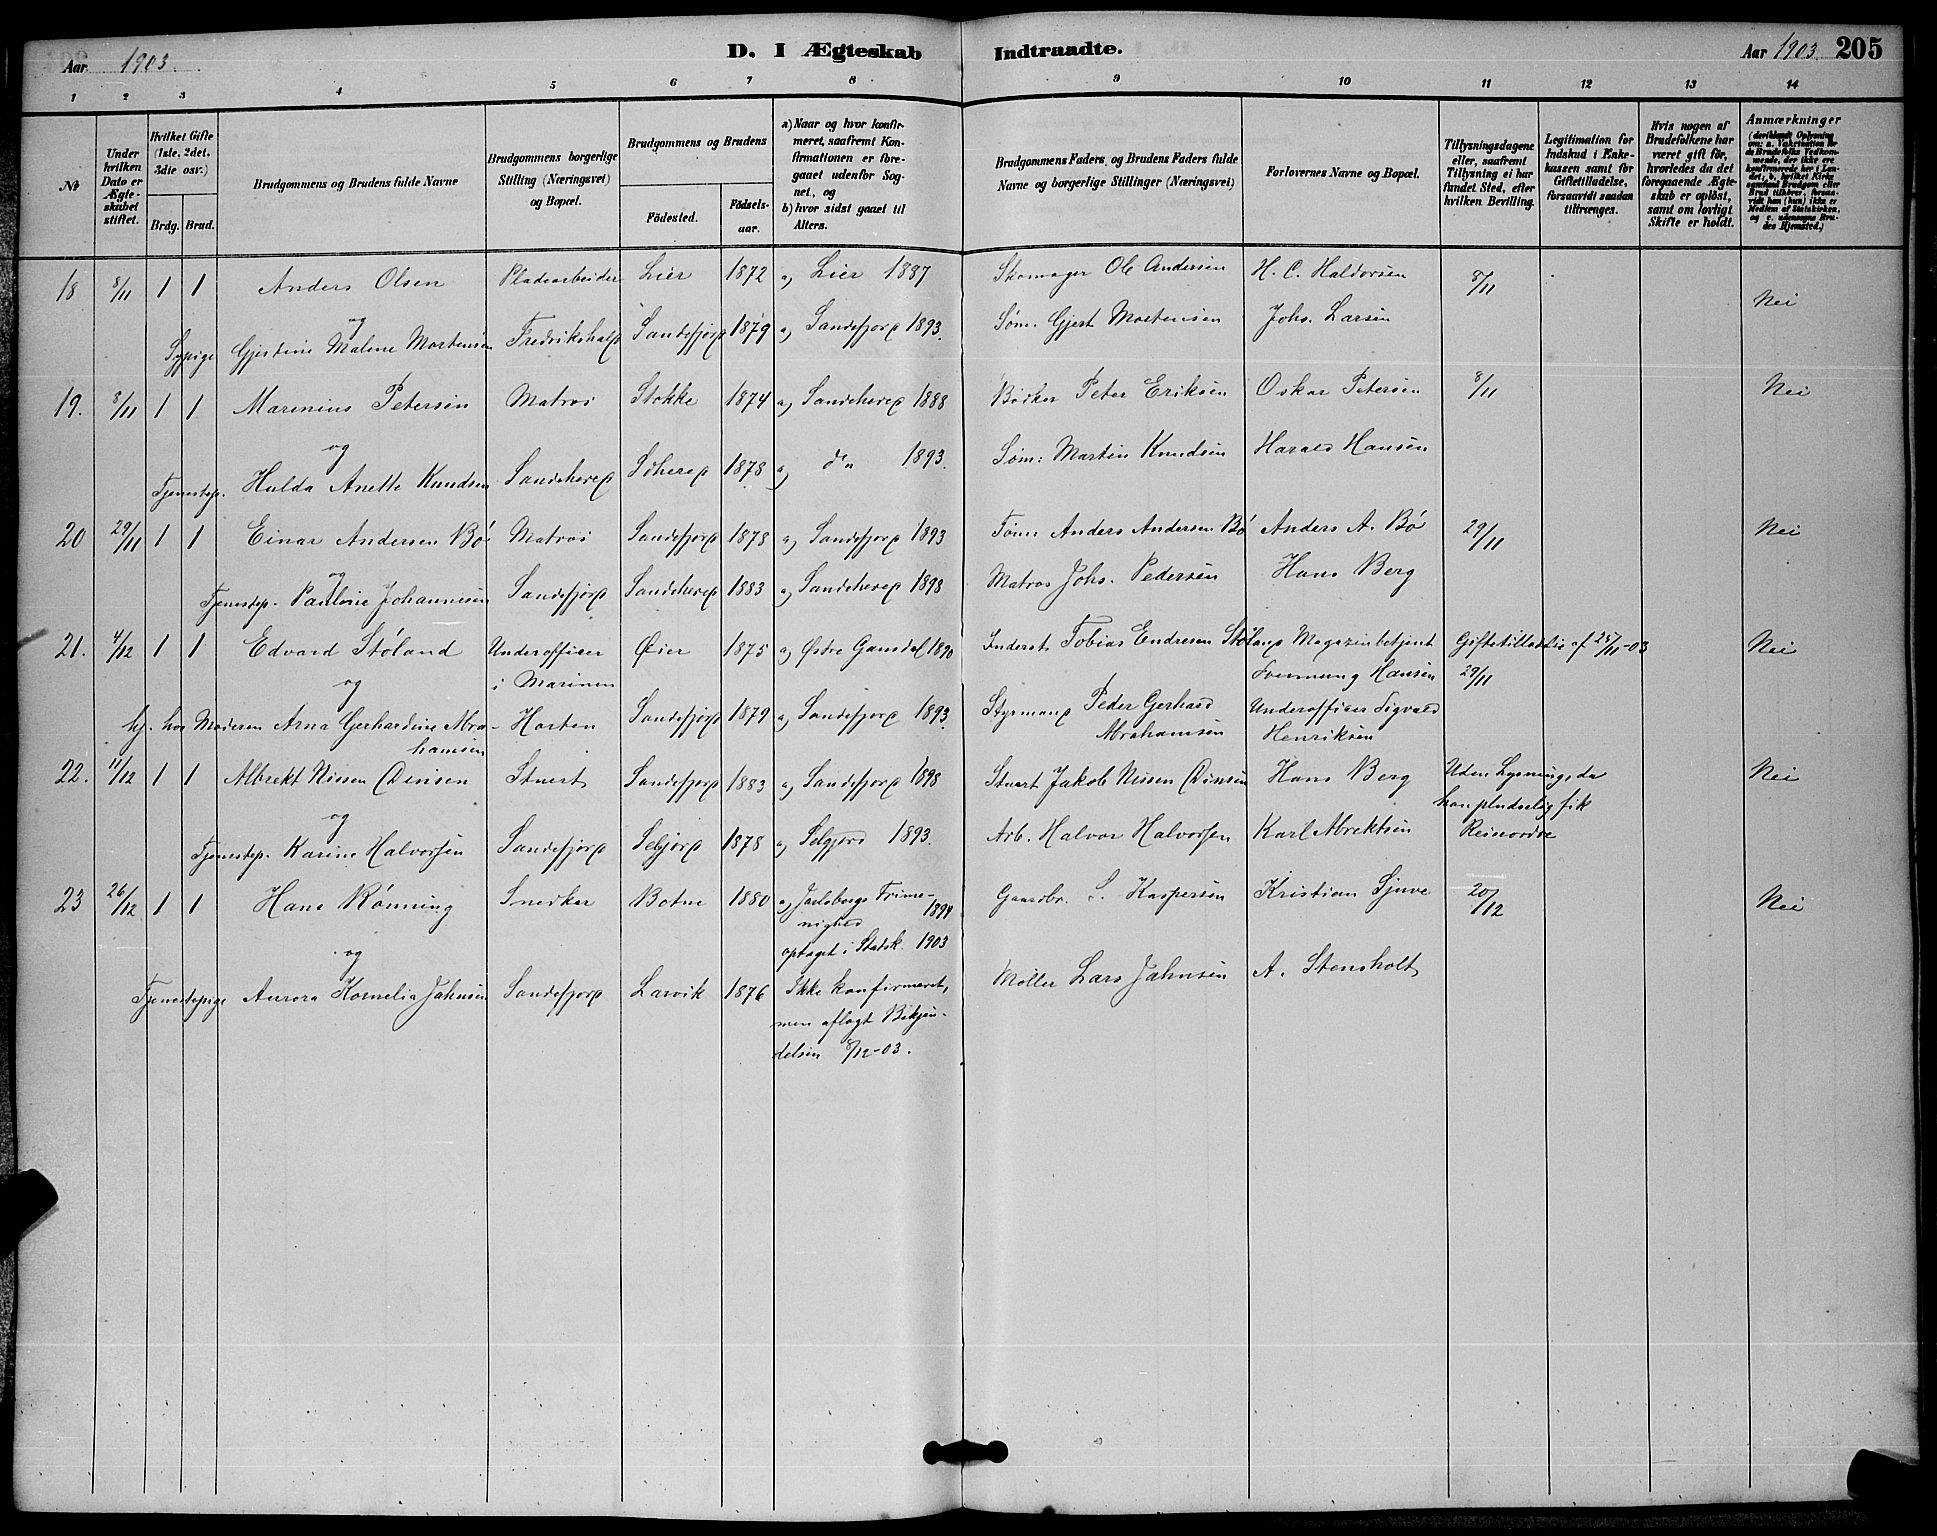 Aar 1903. D. I Ægteskab Indtraadte. Aar 1903. 205
1 2 3 4 5 6 7 8 9 10 11 12 13 14
№
Under hvilken Dato er Ægteskabet stiftet.
Hvilket Gifte (1ste, 2det, 3die osv.)
Brdg. Brud.
Brudgommens og Brudens fulde Navne
Brudgommens borgerlige Stilling (Næringsvei) og Bopæl.
Brudgommens og Brudens
Födested. Födselsaar.
a) Naar og hvor konfirmeret, saafremt Konfirmationen er foregaaet udenfor Sognet, og
b) hvor sidst gaaet til Alters.
Brudgommens Faders, og Brudens Faders fulde Navne og borgerlige Stillinger (Næringsvei)
Forlovernes Navne og Bopæl.
Tillysningsdagene eller, saafremt Tillysning ei har fundet Sted, efter hvilken Bevilling.
Legitimation for Indskud i Enkekassen samt for Giftetilladelse, forsaavidt saadan tiltrænges.
Hvis nogen af Brudefolkene har været gift för, hvorledes da det foregaaende Ægteskab er oplöst, samt om lovligt Skifte er holdt.
Anmærkninger
18 8/11 1 1 Anders Olsen Pladearbeider Lier 1872 a) Lier 1887 Skomager Ole Andersen H. C. Haldorsen 8/11 Nei
og
Sypige Gjestine Malene Mortensen Fredrikshald Sandefjord 1879 a) Sandefjord 1893. Søm. Gjert Mortensen Johs. Larsen
19. 8/11 1 1 Marinius Petersen Matros Stokke 1874 a) Sandeherred 1888 Bødker Peter Eriksen Oskar Petersen 8/11 Nei
og
Tjenestep. Hulda Anette Knudsen Sandeherred Sdherred 1878 a) do 1893. Søm: Martin Knudsen Harald Hansen
20 29/11 1 1 Einar Andersen Bø Matros Sandefjord 1878 a) Sandefjord 1893 Tøm Anders Andersen Bø Anders A. Bø 29/11 Nei
og
Tjenestep. Pauline Johannesen Sandefjord Sandeherred 1883 a) Sandeherred 1898 Matros Johs. Pedersen Hans Berg
21. 4/12 1 1 Edvard Støland Underofficer Øier 1875 a) Østre Gausdal 1890 Inderst Tobias Endresen Støland Magazinbetjent Giftetilladelse af 25/11-03 Nei
og i Marinen Hansen 29/11
hj. hos Moderen Arna Gerhardine Abra- Horten Sandefjord 1879 a) Sandefjord 1893. Styrmand Peder Gerhard Underofficer Sigvald
hamsen Abrahamsen Henriksen
22. 11/12 1 1 Albrekt Nissen Dinsen Stuert Sandefjord 1883 a) Sandefjord 1898 Stuert Jakob Nissen Dinsen Hans Berg Uden Lysning, da Nei
og han pludselig fik
Tjenestep. Karine Halvorsen Sandefjord Seljord 1878 a) Selgjord 1893. Arb. Halvor Halvorsen Karl Albrektsen Reiseordre
23 26/12 1 1 Hans Rønning Snedker Botne 1880 a) Jarlsbergs Frime- 1894 Gaardbr. L. Kaspersen Kristian Sjuve 20/12 Nei
nighed
og optaget i Statsk. 1903
Tjenestepige Aurora Kornelia Jahnsen Sandefjord Larvik 1876 Ikke konfirmeret, Møller Lars Jahnsen A. Stensholt
men aflagt Bekjen-
delsen 8/12-03.